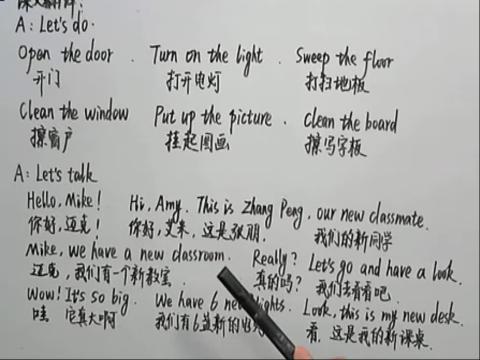 课文翻译:
A: Let's do.
Open the door . Turn on the light . Sweep the floor
开门 打开电灯 打扫地板
Clean the window Put up the picture . Clean the board
擦窗户 挂起图画 擦写字板
A: Let's talk
Hello, Mike! Hi, Amy. This is Zhang Peng, our new classmate.
你好,迈克! 你好,艾米,这是张朋, 我们的新同学
Mike, we have a new classroom. Really? Let's go and have a look.
迈克,我们有一个新教室. 真的吗? 我们去看看吧
Wow! It's so big. We have 6 new lights. Look, this is my new desk.
哇 它真大啊 我们有6盏新的电灯. 看,这是我的新课桌.